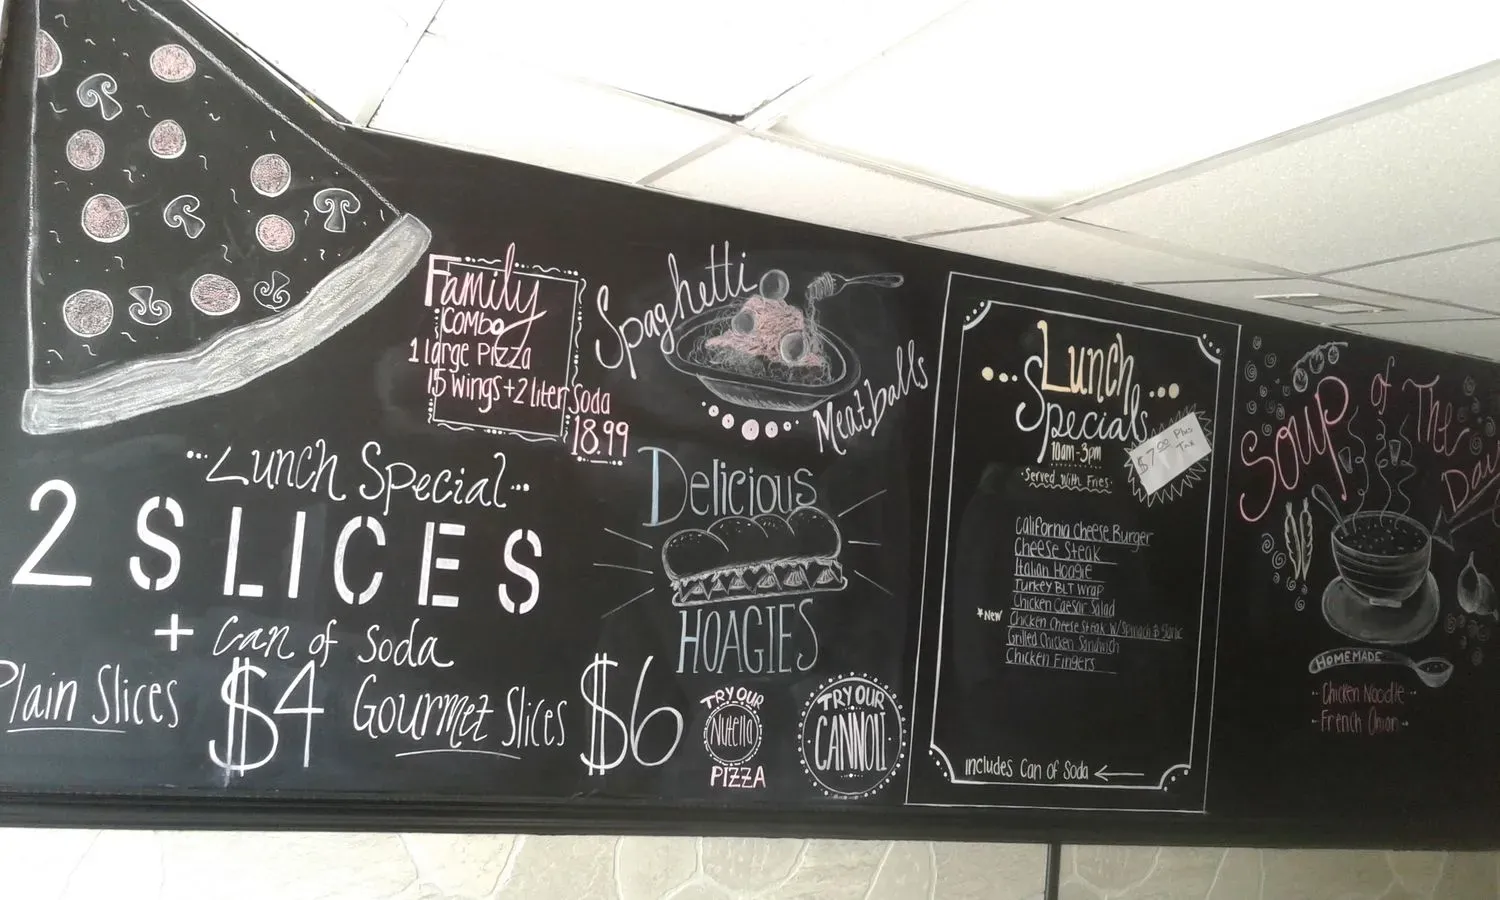 Family
Combo
1 large Pizza
15 wings + 2 liter Soda
18.99
Spaghetti
Meatballs
Lunch Special
2 SLICES
+ Can of Soda
Plain Slices $4 Gourmet Slices $6
Delicious
HOAGIES
TRY OUR
Nutella
PIZZA
TRY OUR
CANNOLI
Lunch
Specials
10am-3pm
Served With Fries
$7.00 Plus
Tax
California Cheese Burger
Cheese Steak
Italian Hoagie
Turkey BLT Wrap
Chicken Caesar Salad
*New Chicken Cheese Steak W/ Spinach & Garlic
Grilled Chicken Sandwich
Chicken Fingers
includes Can of Soda
Soup of The
Day
HOMEMADE
Chicken Noodle
French Onion